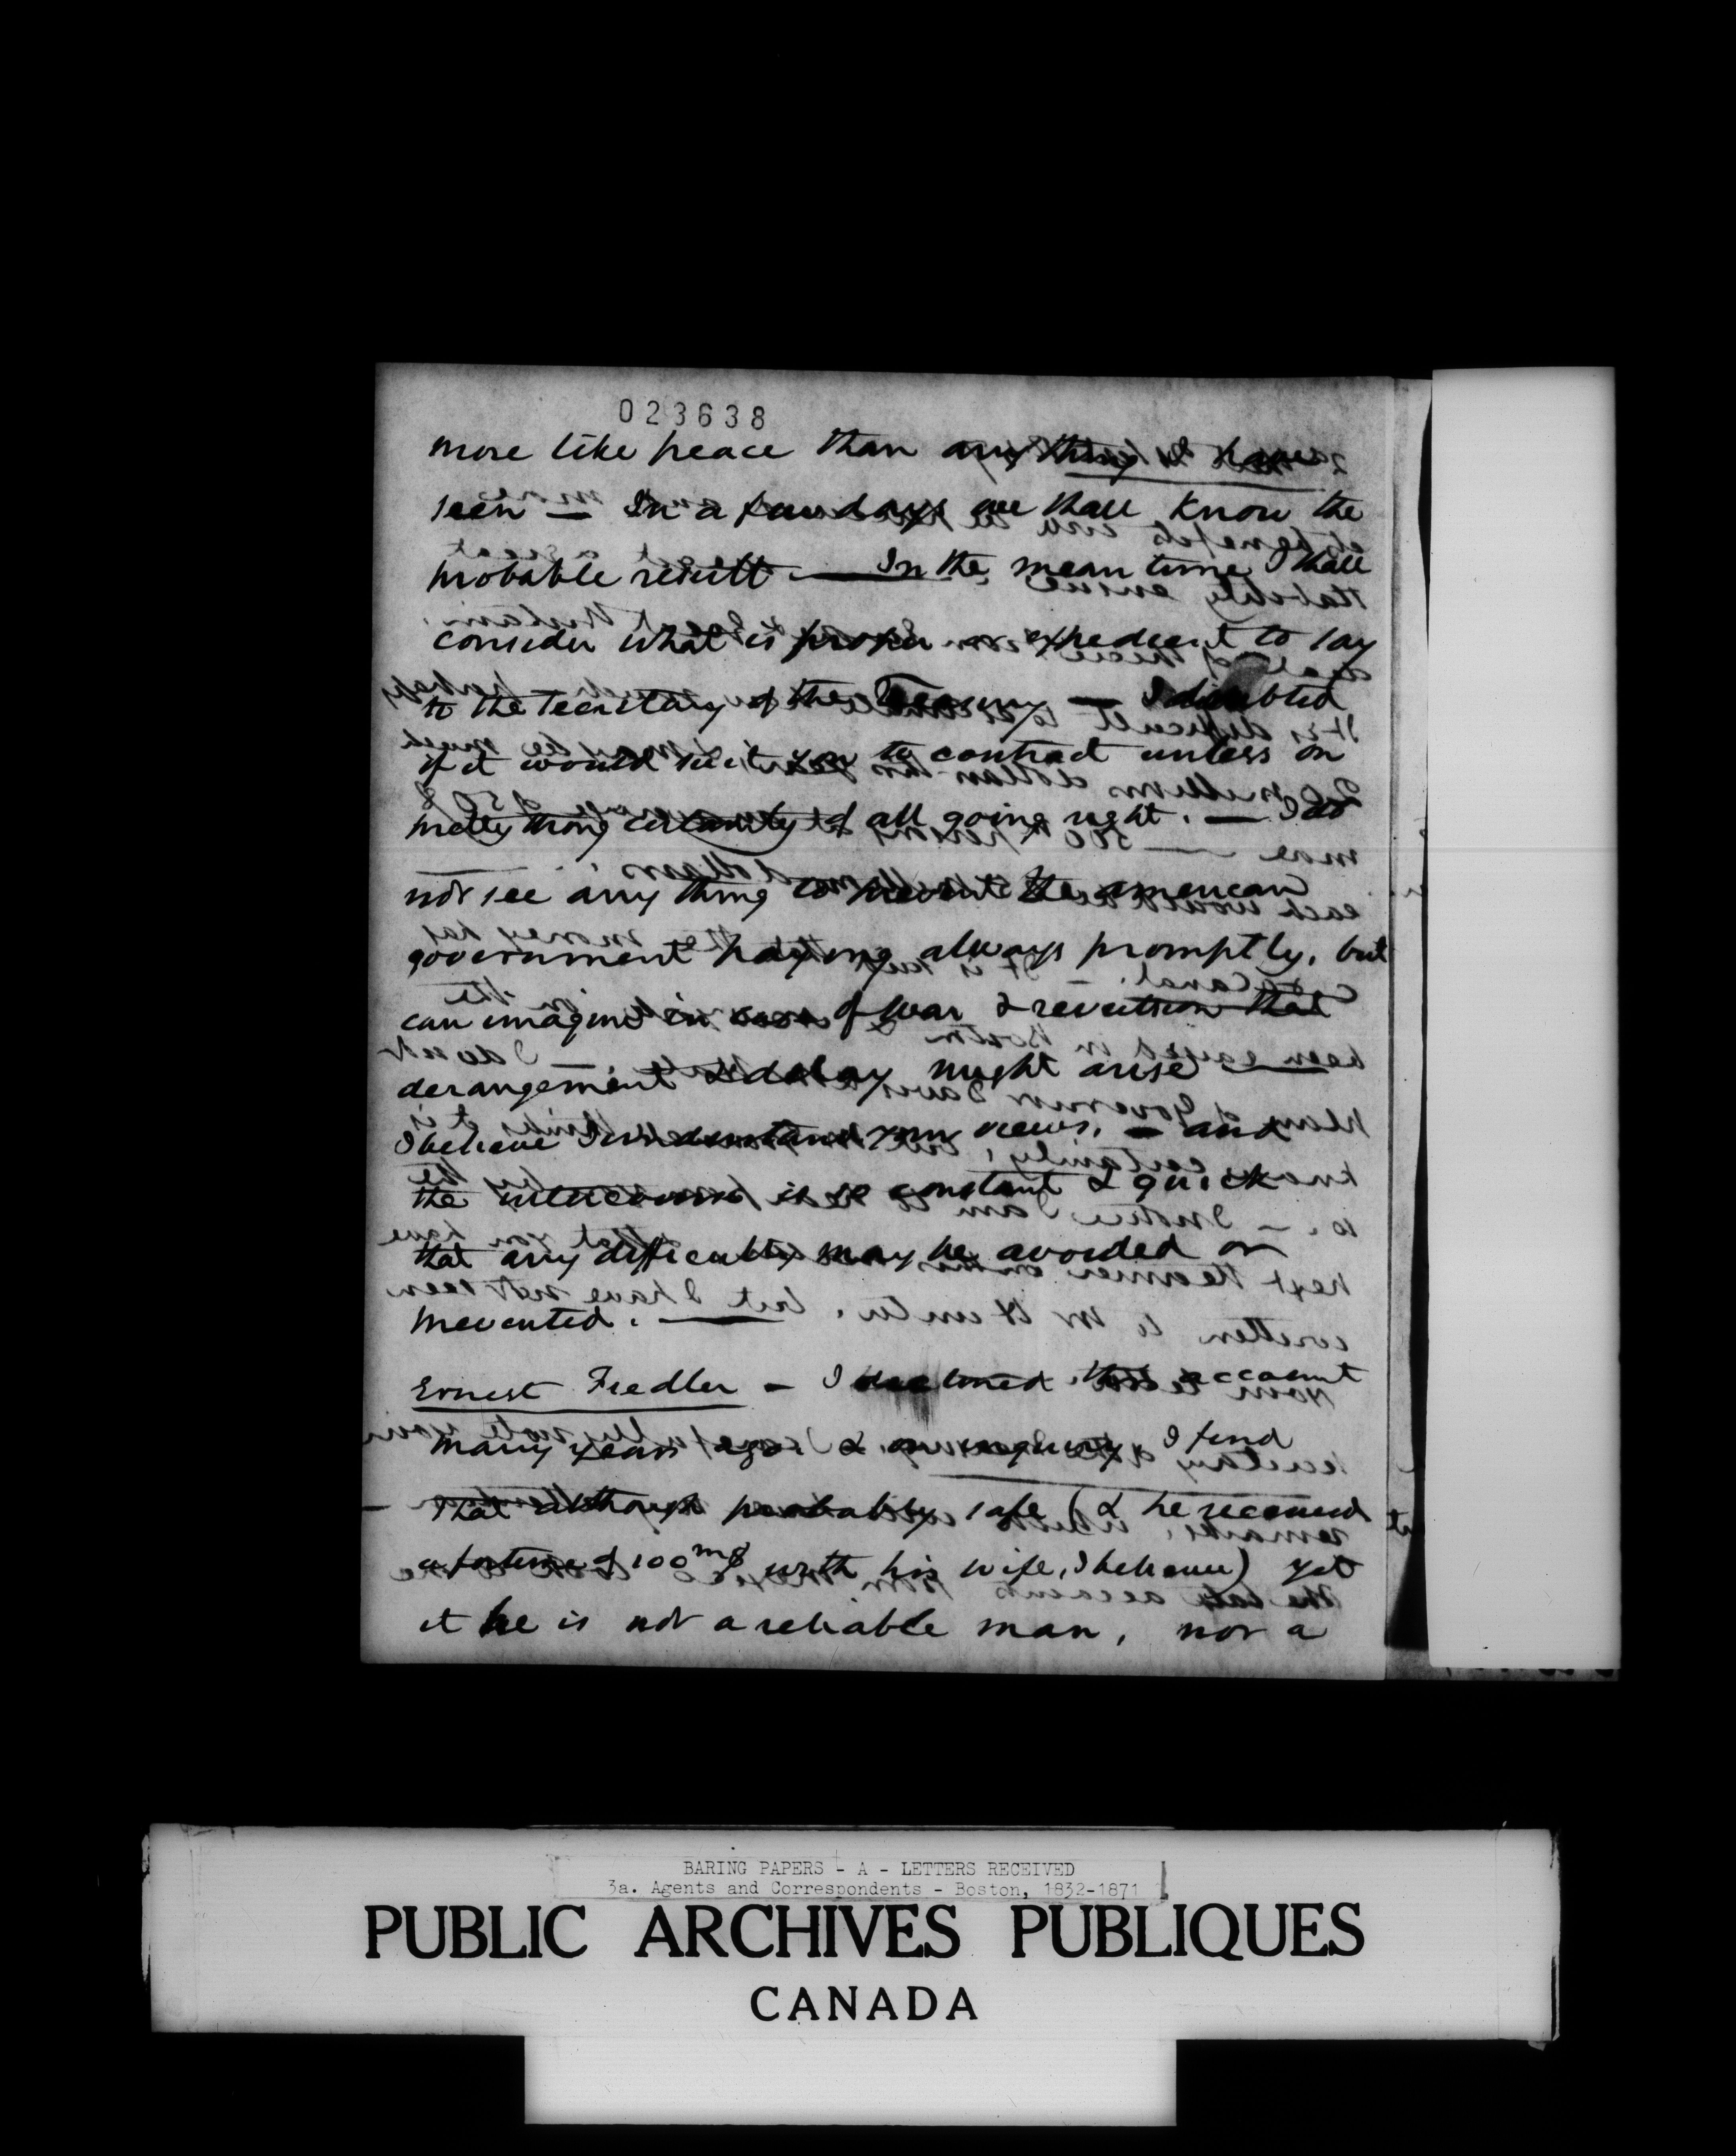 023638
more like peace than any thing I have
seen — In a few days we shall know the
probable result — In the mean time I shall
consider what is proper or expedient to say
to the Secretary of the Treasury — I doubted
if it would suit you to contract unless on
pretty strong certainty of all going right. — I do
not see any thing to prevent the american
government paying always promptly, but
can imagine in case of war & revulsion that
derangement & delay might arise —
I believe I understand your views. — and
the intercourse is so constant & quick
that any difficulty may be avoided or
prevented. —
Ernest Fiedler — I declined this account
many years ago. & on inquiry, I find
that although probably safe (& he received
a fortune of 100 m$ with his wife, I believe) yet
it he is not a reliable man, nor a
BARING PAPERS - A - LETTERS RECEIVED
3a. Agents and Correspondents - Boston, 1832-1871
PUBLIC ARCHIVES PUBLIQUES
CANADA